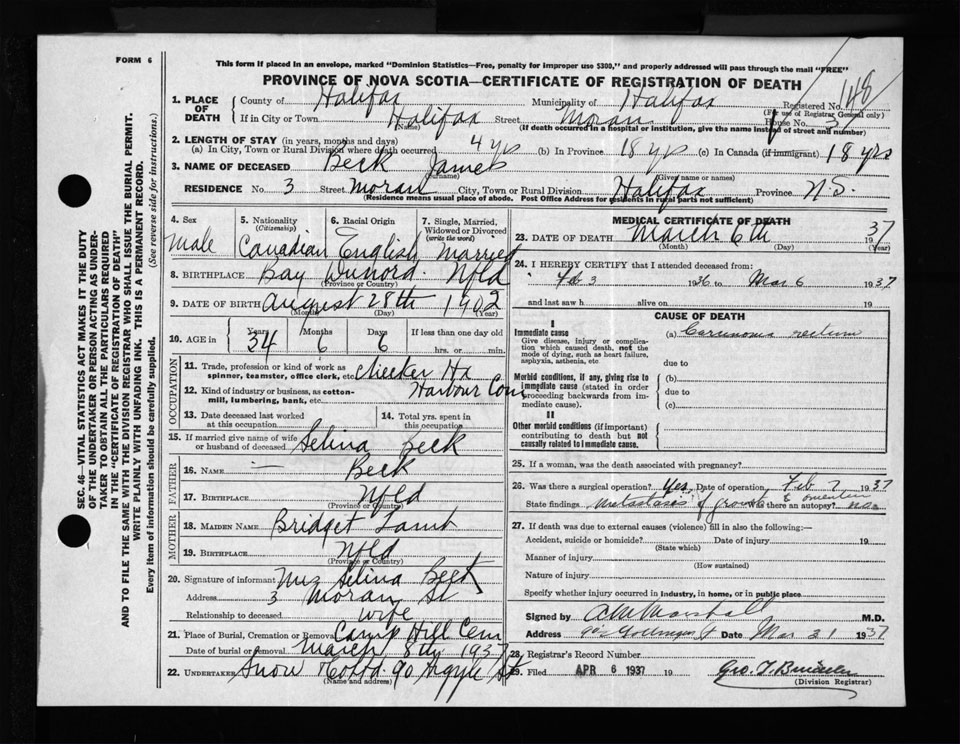 FORM 6
This form if placed in an envelope, marked "Dominion Statistics—Free, penalty for improper use $300," and properly addressed will pass through the mail "FREE"
PROVINCE OF NOVA SCOTIA—CERTIFICATE OF REGISTRATION OF DEATH
148
1. PLACE OF DEATH { County of Halifax Municipality of Halifax Registered No.
(For use of Registrar General only)
If in City or Town Halifax Street Moran House No. 3
(Name) (If death occurred in a hospital or institution, give the name instead of street and number)
2. LENGTH OF STAY (in years, months and days)
(a) In City, Town or Rural Division where death occurred 4 yrs (b) In Province 18 yrs (c) In Canada (if immigrant) 18 yrs
3. NAME OF DECEASED Beck James
(Surname) (Given name or names)
RESIDENCE No. 3 Street Moran City, Town or Rural Division Halifax Province N.S.
(Residence means usual place of abode. Post Office Address for residents in rural parts not sufficient)
4. Sex Male
5. Nationality (Citizenship) Canadian
6. Racial Origin English
7. Single, Married, Widowed or Divorced (write the word) Married
8. BIRTHPLACE Bay Nfld
(Province or Country)
9. DATE OF BIRTH August 28th 1902
(Month) (Day) (Year)
10. AGE in { Years 34 Months 6 Days 6 If less than one day old
hrs. or min.
OCCUPATION
11. Trade, profession or kind of work as spinner, teamster, office clerk, etc. Checker Hx
12. Kind of industry or business, as cotton-mill, lumbering, bank, etc. Harbour Com
13. Date deceased last worked at this occupation
14. Total yrs. spent in this occupation
15. If married give name of wife or husband of deceased Selina Beck
FATHER
16. NAME — Beck
17. BIRTHPLACE Nfld
(Province or Country)
MOTHER
18. MAIDEN NAME Bridget Lamb
19. BIRTHPLACE Nfld
(Province or Country)
20. Signature of informant Mrs Selina Beck
Address 3 Moran St
Relationship to deceased wife
21. Place of Burial, Cremation or Removal Camp Hill Cem
Date of burial or removal March 8th 1937
22. UNDERTAKER Snow 90 Argyle St
(Name and address)
MEDICAL CERTIFICATE OF DEATH
23. DATE OF DEATH March 6th 1937
(Month) (Day) (Year)
24. I HEREBY CERTIFY that I attended deceased from:
Feb 3 1936 to Mar 6 1937
and last saw h alive on 19
CAUSE OF DEATH
I
Immediate cause
Give disease, injury or complication which caused death, not the mode of dying, such as heart failure, asphyxia, asthenia, etc.
(a) Carcinoma rectum
due to
Morbid conditions, if any, giving rise to immediate cause (stated in order proceeding backwards from immediate cause).
(b)
due to
(c)
II
Other morbid conditions (if important) contributing to death but not causally related to immediate cause.
25. If a woman, was the death associated with pregnancy?
26. Was there a surgical operation? Yes Date of operation Feb 7 1937
State findings metastasis of growth to omentum Was there an autopsy?
27. If death was due to external causes (violence) fill in also the following:—
Accident, suicide or homicide? Date of injury 19
(State which)
Manner of injury
(How sustained)
Nature of injury
Specify whether injury occurred in industry, in home, or in public place
Signed by Marshall M.D.
Address Date Mar 31 1937
28. Registrar's Record Number
29. Filed APR 6 1937 19 Geo. T.
(Division Registrar)
SEC. 46—VITAL STATISTICS ACT MAKES IT THE DUTY
OF THE UNDERTAKER OR PERSON ACTING AS UNDER-
TAKER TO OBTAIN ALL THE PARTICULARS REQUIRED
IN THE "CERTIFICATE OF REGISTRATION OF DEATH"
AND TO FILE THE SAME WITH THE DIVISION REGISTRAR WHO SHALL ISSUE THE BURIAL PERMIT.
WRITE PLAINLY WITH UNFADING INK. THIS IS A PERMANENT RECORD.
Every item of information should be carefully supplied. (See reverse side for instructions.)